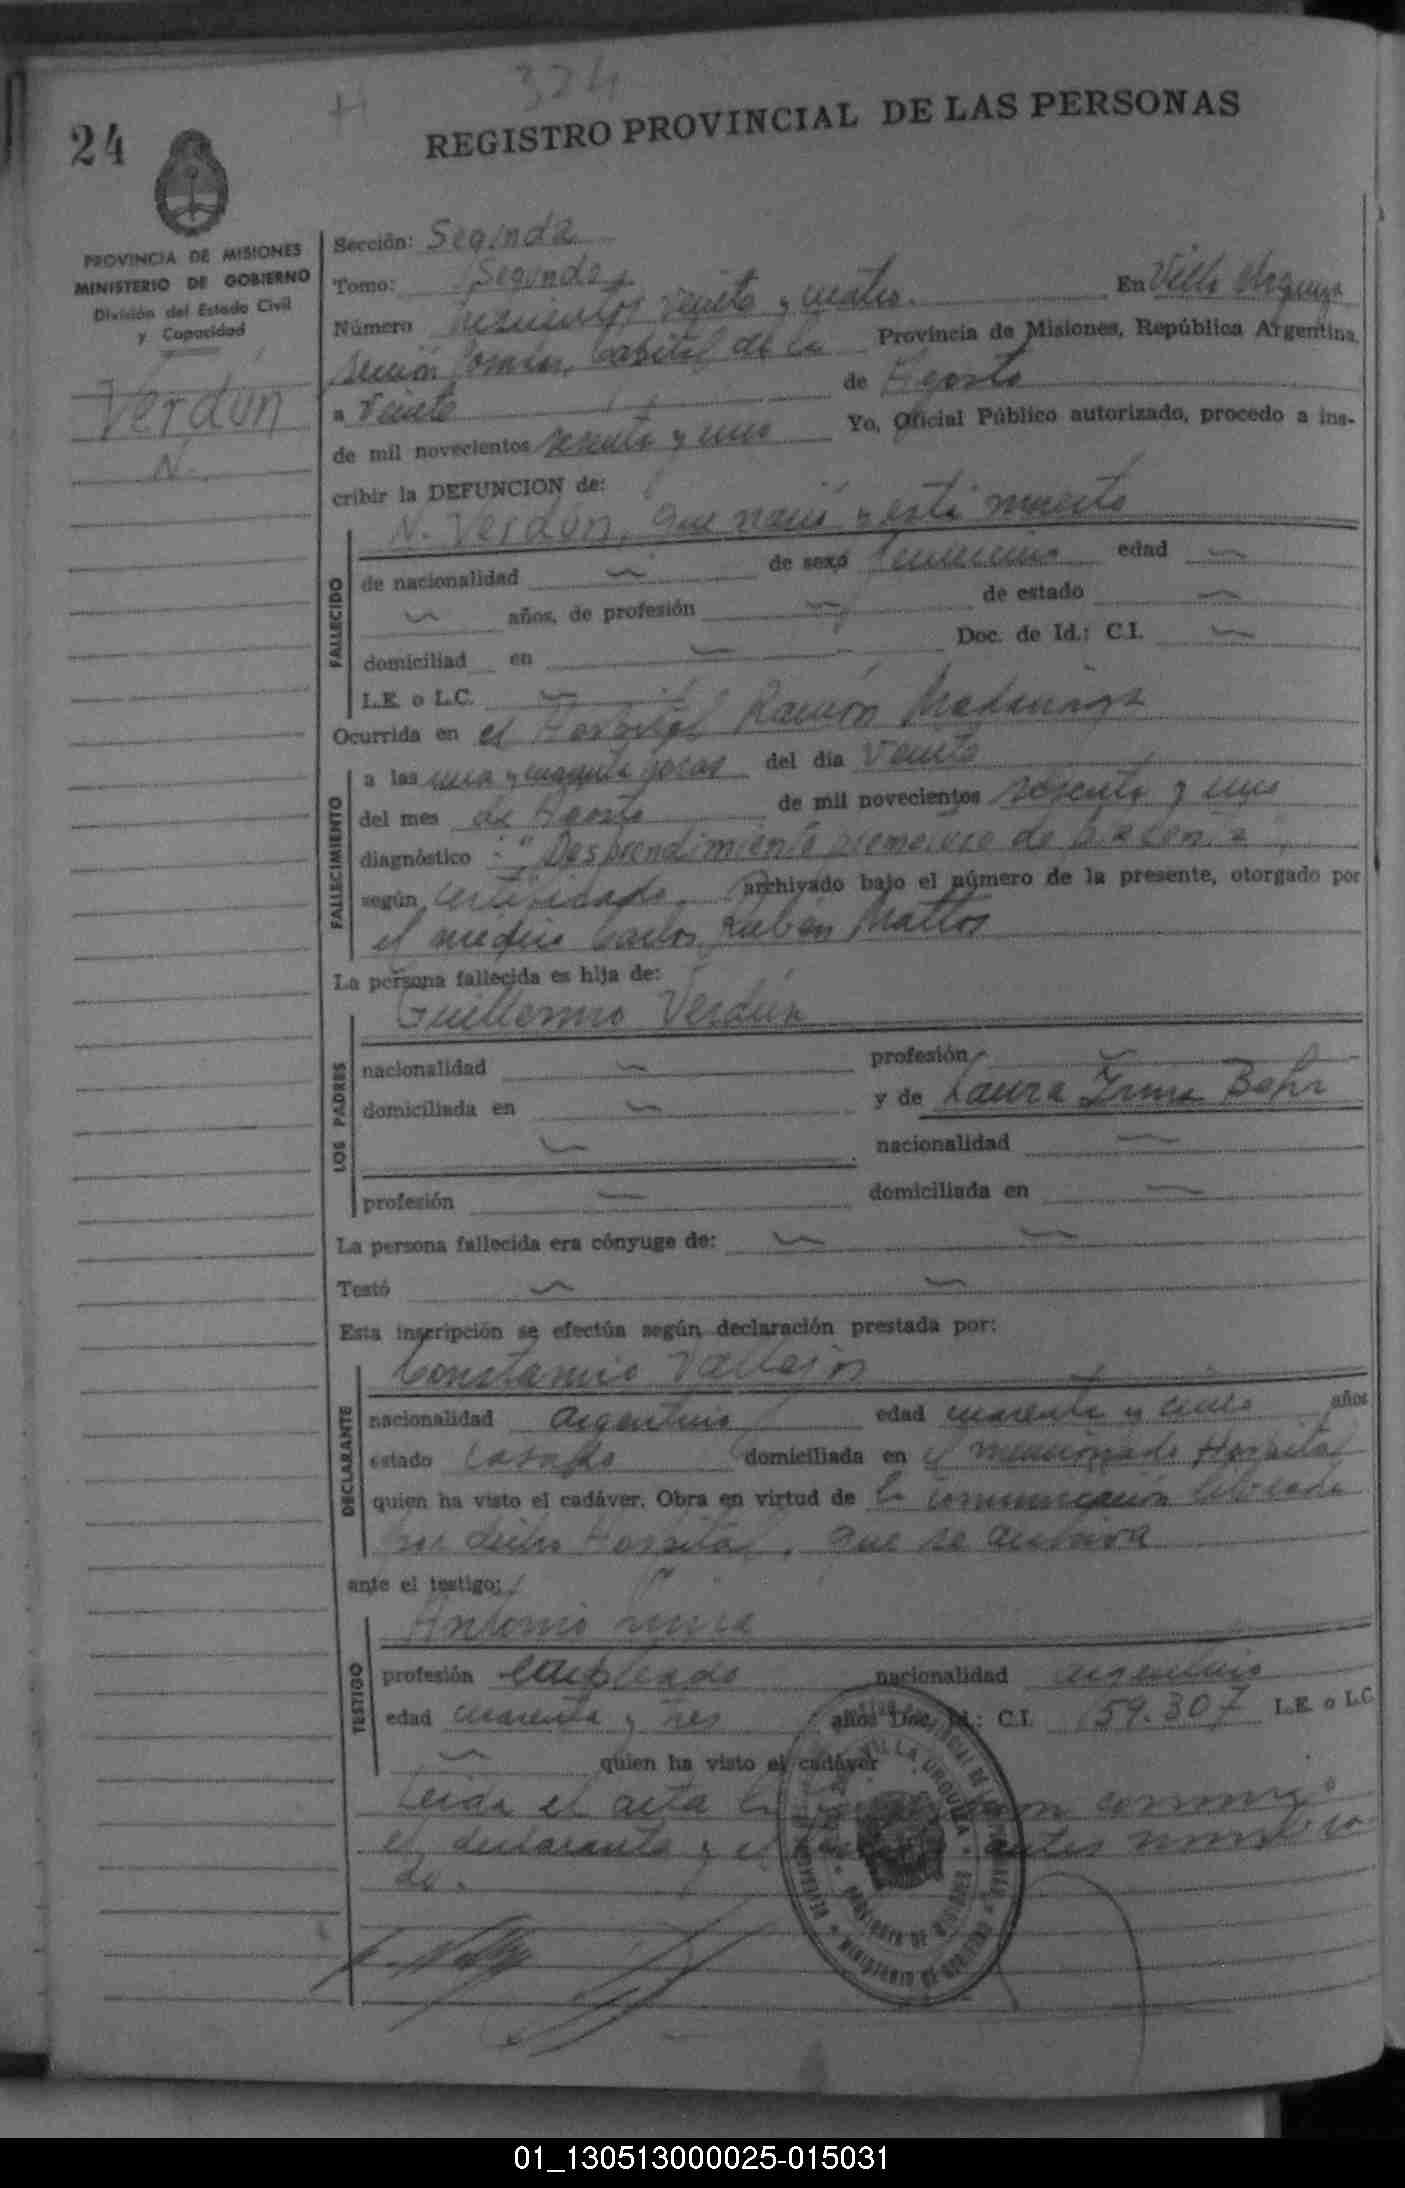 H 324
24
REGISTRO PROVINCIAL DE LAS PERSONAS
PROVINCIA DE MISIONES
MINISTERIO DE GOBIERNO
División del Estado Civil
y Capacidad
Verdún
N.
Sección: Segunda
Tomo: Segundo
En Villa Urquiza
Número trescientos veinte y cuatro.
Sección Posadas, Capital de la Provincia de Misiones, República Argentina,
a veinte de Agosto
de mil novecientos sesenta y uno Yo, Oficial Público autorizado, procedo a ins-
cribir la DEFUNCION de:
N. Verdún, que nació y está muerta
FALLECIDO
de nacionalidad de sexo femenino edad
años, de profesión de estado
domiciliad en Doc. de Id.: C.I.
L.E. o L.C.
Ocurrida en el Hospital Ramón Madariaga
FALLECIMIENTO
a las una y cuarenta horas del día veinte
del mes de Agosto de mil novecientos sesenta y uno
diagnóstico : "Desprendimiento de placenta"
según certificado archivado bajo el número de la presente, otorgado por
el médico Carlos Rubén Mattos
La persona fallecida es hija de:
Guillermo Verdún
LOS PADRES
nacionalidad profesión
domiciliada en y de Laura Irma Bohr
nacionalidad
profesión domiciliada en
La persona fallecida era cónyuge de:
Testó
Esta inscripción se efectúa según declaración prestada por:
Constancio Vallejos
DECLARANTE
nacionalidad argentino edad cuarenta y cinco años
estado casado domiciliada en el mencionado Hospital
quien ha visto el cadáver. Obra en virtud de la comunicación librada
por dicho Hospital, que se archiva
ante el testigo:
Antonio
TESTIGO
profesión empleado nacionalidad argentino
edad cuarenta y tres años Doc. Id.: C.I. 159.307 L.E. o L.C.
quien ha visto el cadáver
Leída el acta la conmigo
el declarante y el testigo antes nombra-
do.
VILLA URQUIZA
PROVINCIA DE MISIONES
MINISTERIO DE GOBIERNO
01_130513000025-015031